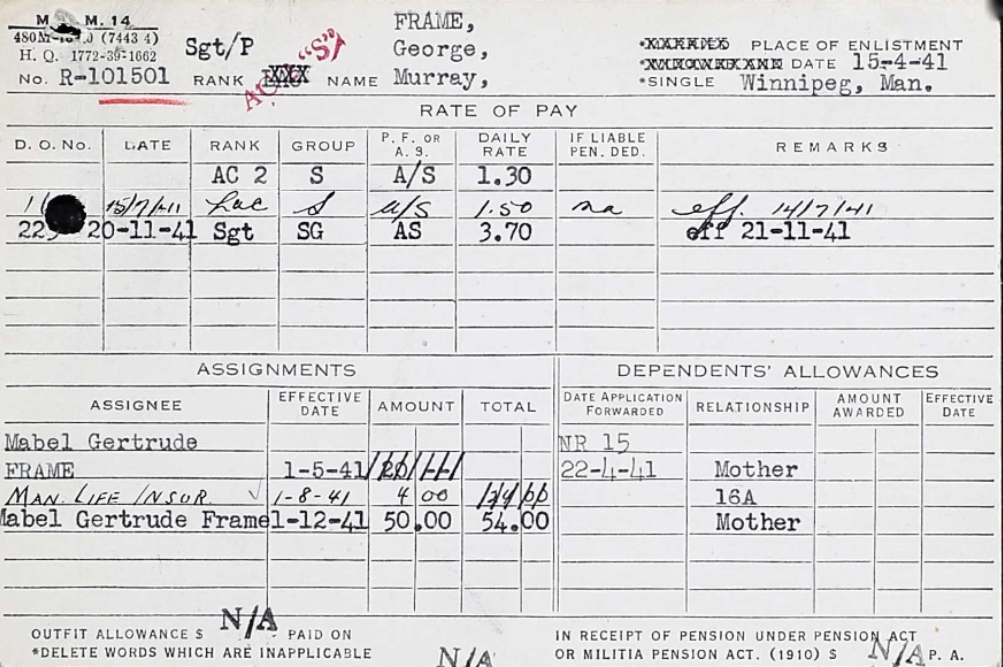 M. M. 14
480M (7443 4)
H. Q. 1772-39-1662
No. R-101501 RANK Sgt/P NAME FRAME,
George,
Murray,
"S"
*XXXXXXX PLACE OF ENLISTMENT
DATE 15-4-41
*SINGLE Winnipeg, Man.
RATE OF PAY
D. O. No. DATE RANK GROUP P. F. OR A. S. DAILY RATE IF LIABLE PEN. DED. REMARKS
AC 2 S A/S 1.30
15/7/41 Lac S A/S 1.50 na eff. 14/7/41
22 20-11-41 Sgt SG AS 3.70 eff 21-11-41
ASSIGNMENTS DEPENDENTS' ALLOWANCES
ASSIGNEE EFFECTIVE DATE AMOUNT TOTAL DATE APPLICATION FORWARDED RELATIONSHIP AMOUNT AWARDED EFFECTIVE DATE
Mabel Gertrude NR 15
FRAME 1-5-41 20 22-4-41 Mother
MAN. LIFE INSUR. 1-8-41 4 00 16A
Mabel Gertrude Frame 1-12-41 50.00 54.00 Mother
OUTFIT ALLOWANCE $ N/A PAID ON N/A
*DELETE WORDS WHICH ARE INAPPLICABLE
IN RECEIPT OF PENSION UNDER PENSION ACT
OR MILITIA PENSION ACT. (1910) $ N/A P. A.